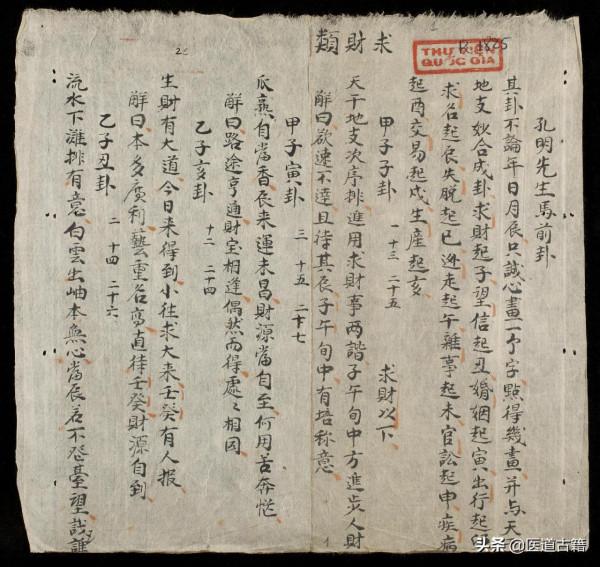 孔明先生馬前卦
其卦不論年日月辰只誠心畫一字點得幾畫并与天
地支妙合成卦求財起子望信起丑婚姻起寅出行起
求名起辰失脫起巳逃走起午雜事起未官訟起申疾病
起酉交易起戌生産起亥
甲子子卦 一 十三 二十五 求財以下
求財類
天干地支次序排進用求財事两諧子午旬中方進步人財
解曰欲速不達且待其辰子午旬中有培称意
甲子寅卦 三 十五 二十七
瓜熟自當香辰来運未昌財源當自至何用苦奔忙
解曰路途亨通財宝相逢偶然而得處〻相因
乙子亥卦 十二 二十四
生財有大道今日来得到小往求大来壬癸有人报
解曰本多廣利藝重名高直待壬癸財源自到
乙子丑卦 二 十四 二十六
流水下灘排有意白雲出岫本無心當辰若不登臺望誰
THƯ VIỆN
QUỐC GIA
R.1825
头条 @医道古籍